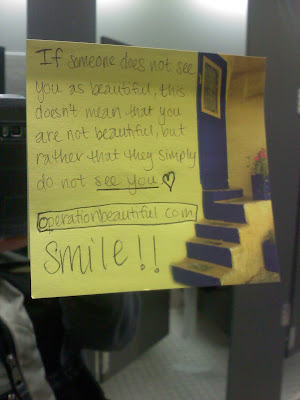 If someone does not see
you as beautiful, this
doesn't mean that you
are not beautiful, but
rather that they simply
do not see you ♡
operationbeautiful.com
smile!!